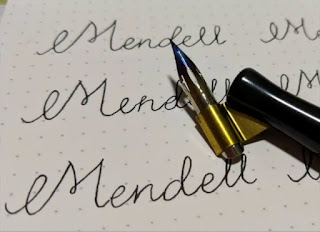 Mendell
Mendell
Mendell